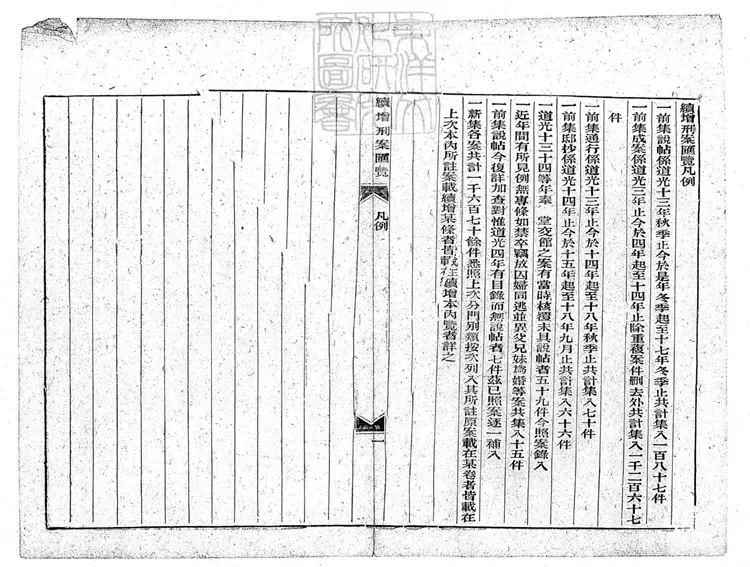 續增刑案匯覽凡例
一前集說帖係道光十三年秋季止今於是年冬季起至十七年冬季止共計集入一百八十七件
一前集成案係道光三年止今於四年起至十四年止除重複案件刪去外共計集入一千二百六十七
件
一前集通行係道光十三年止今於十四年起至十八年秋季止共計集入七十件
一前集邸抄係道光十四年止今於十五年起至十八年九月止共計集入六十六件
一道光十三十四等年奉 堂交館之案有當時核覆未具說帖者五十九件今照案錄入
一近年間有所見例無專條如禁卒竊放囚婦同逃並異父兄妹為婚等案共集入十五件
一前集說帖今復詳加查對惟道光四年有目錄而無說帖者七件茲已照案逐一補入
一新集各案共計一千六百七十餘件悉照上次分門別類按次列入其所註原案載在某卷者皆載在
上次本內所註案載續增某條者皆載在續增本內覽者詳之
續增刑案匯覽
凡例
一
東洋文化研究所圖書